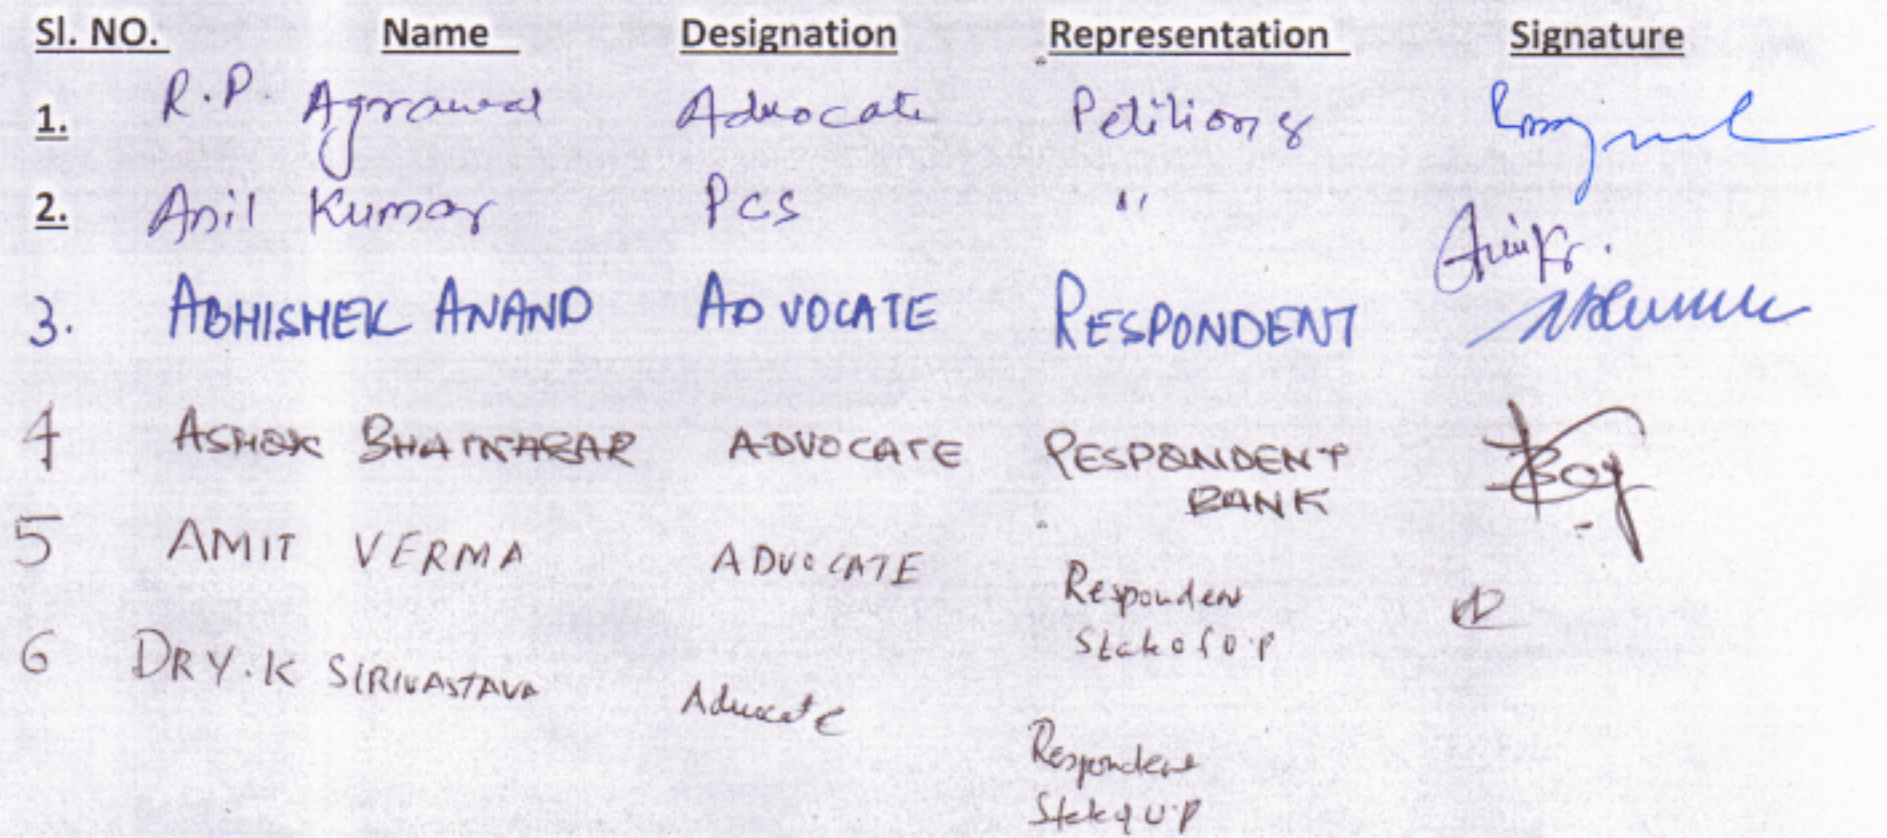 Sl. NO. Name Designation Representation Signature
1. R.P. Agrawal Advocate Petitioner
2. Anil Kumar PCS "
Anil Kr.
3. ABHISHEK ANAND ADVOCATE RESPONDENT
4 ASHOK BHATNAGAR ADVOCATE RESPONDENT
BANK
5 AMIT VERMA ADVOCATE Respondent
State of U.P
6 DR Y.K SIRIVASTAVA Advocate
Respondent
State of U.P